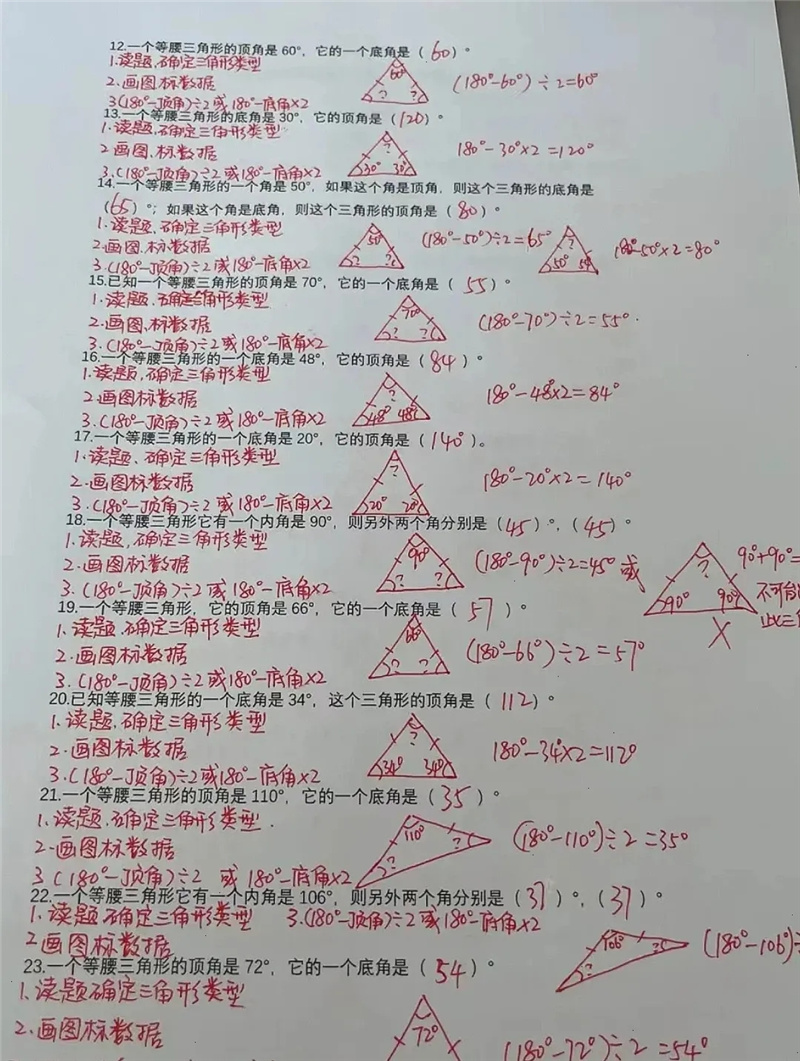 12.一个等腰三角形的顶角是60°，它的一个底角是（60）°。
1.读题，确定三角形类型
60°
? ?
(180°-60°)÷2=60°
2.画图标数据
3.(180°-顶角)÷2或180°-底角×2
13.一个等腰三角形的底角是30°，它的顶角是（120）°。
1.读题，确定三角形类型
?
30° 30°
180°-30°×2=120°
2.画图，标数据
3.(180°-顶角)÷2或180°-底角×2
14.一个等腰三角形的一个角是50°，如果这个角是顶角，则这个三角形的底角是
（65）°；如果这个角是底角，则这个三角形的顶角是（80）°。
1.读题，确定三角形类型
50°
? ?
(180°-50°)÷2=65°
?
50° 50°
180°-50°×2=80°
2.画图，标数据
3.(180°-顶角)÷2或180°-底角×2
15.已知一个等腰三角形的顶角是70°，它的一个底角是（55）°。
1.读题，确定三角形类型
70°
? ?
(180°-70°)÷2=55°.
2.画图，标数据
3.(180°-顶角)÷2或180°-底角×2
16.一个等腰三角形的一个底角是48°，它的顶角是（84）°。
1.读题，确定三角形类型
?
48° 48°
180°-48°×2=84°
2.画图，标数据
3.(180°-顶角)÷2或180°-底角×2
17.一个等腰三角形的一个底角是20°，它的顶角是（140°）。
1.读题、确定三角形类型
?
20° 20°
180°-20°×2=140°
2.画图标数据
3.(180°-顶角)÷2或180°-底角×2
18.一个等腰三角形它有一个内角是90°，则另外两个角分别是（45）°，（45）°
1.读题，确定三角形类型
90°
? ?
(180°-90°)÷2=45°或
?
90° 90°
90°+90°=
不可能
此三角
×
2.画图标数据
3.(180°-顶角)÷2或180°-底角×2
19.一个等腰三角形，它的顶角是66°，它的一个底角是（57）°。
1.读题，确定三角形类型
66°
? ?
(180°-66°)÷2=57°
2.画图标数据
3.(180°-顶角)÷2或180°-底角×2
20.已知等腰三角形的一个底角是34°，这个三角形的顶角是（112）°。
1.读题，确定三角形类型
?
34° 34°
180°-34°×2=112°
2.画图标数据
3.(180°-顶角)÷2或180°-底角×2
21.一个等腰三角形的顶角是110°，它的一个底角是（35）°。
1.读题，确定三角形类型.
110°
? ?
(180°-110°)÷2=35°
2.画图标数据
3(180°-顶角)÷2 或180°-底角×2
22.一个等腰三角形它有一个内角是106°，则另外两个角分别是（37）°，（37）°
1.读题确定三角形类型 3.(180°-顶角)÷2或180°-底角×2
2.画图标数据
106°
?
(180°-106°)÷
23.一个等腰三角形的顶角是72°，它的一个底角是（54）°
1.读题确定三角形类型
2.画图标数据
72°
(180°-72°)÷2=54°